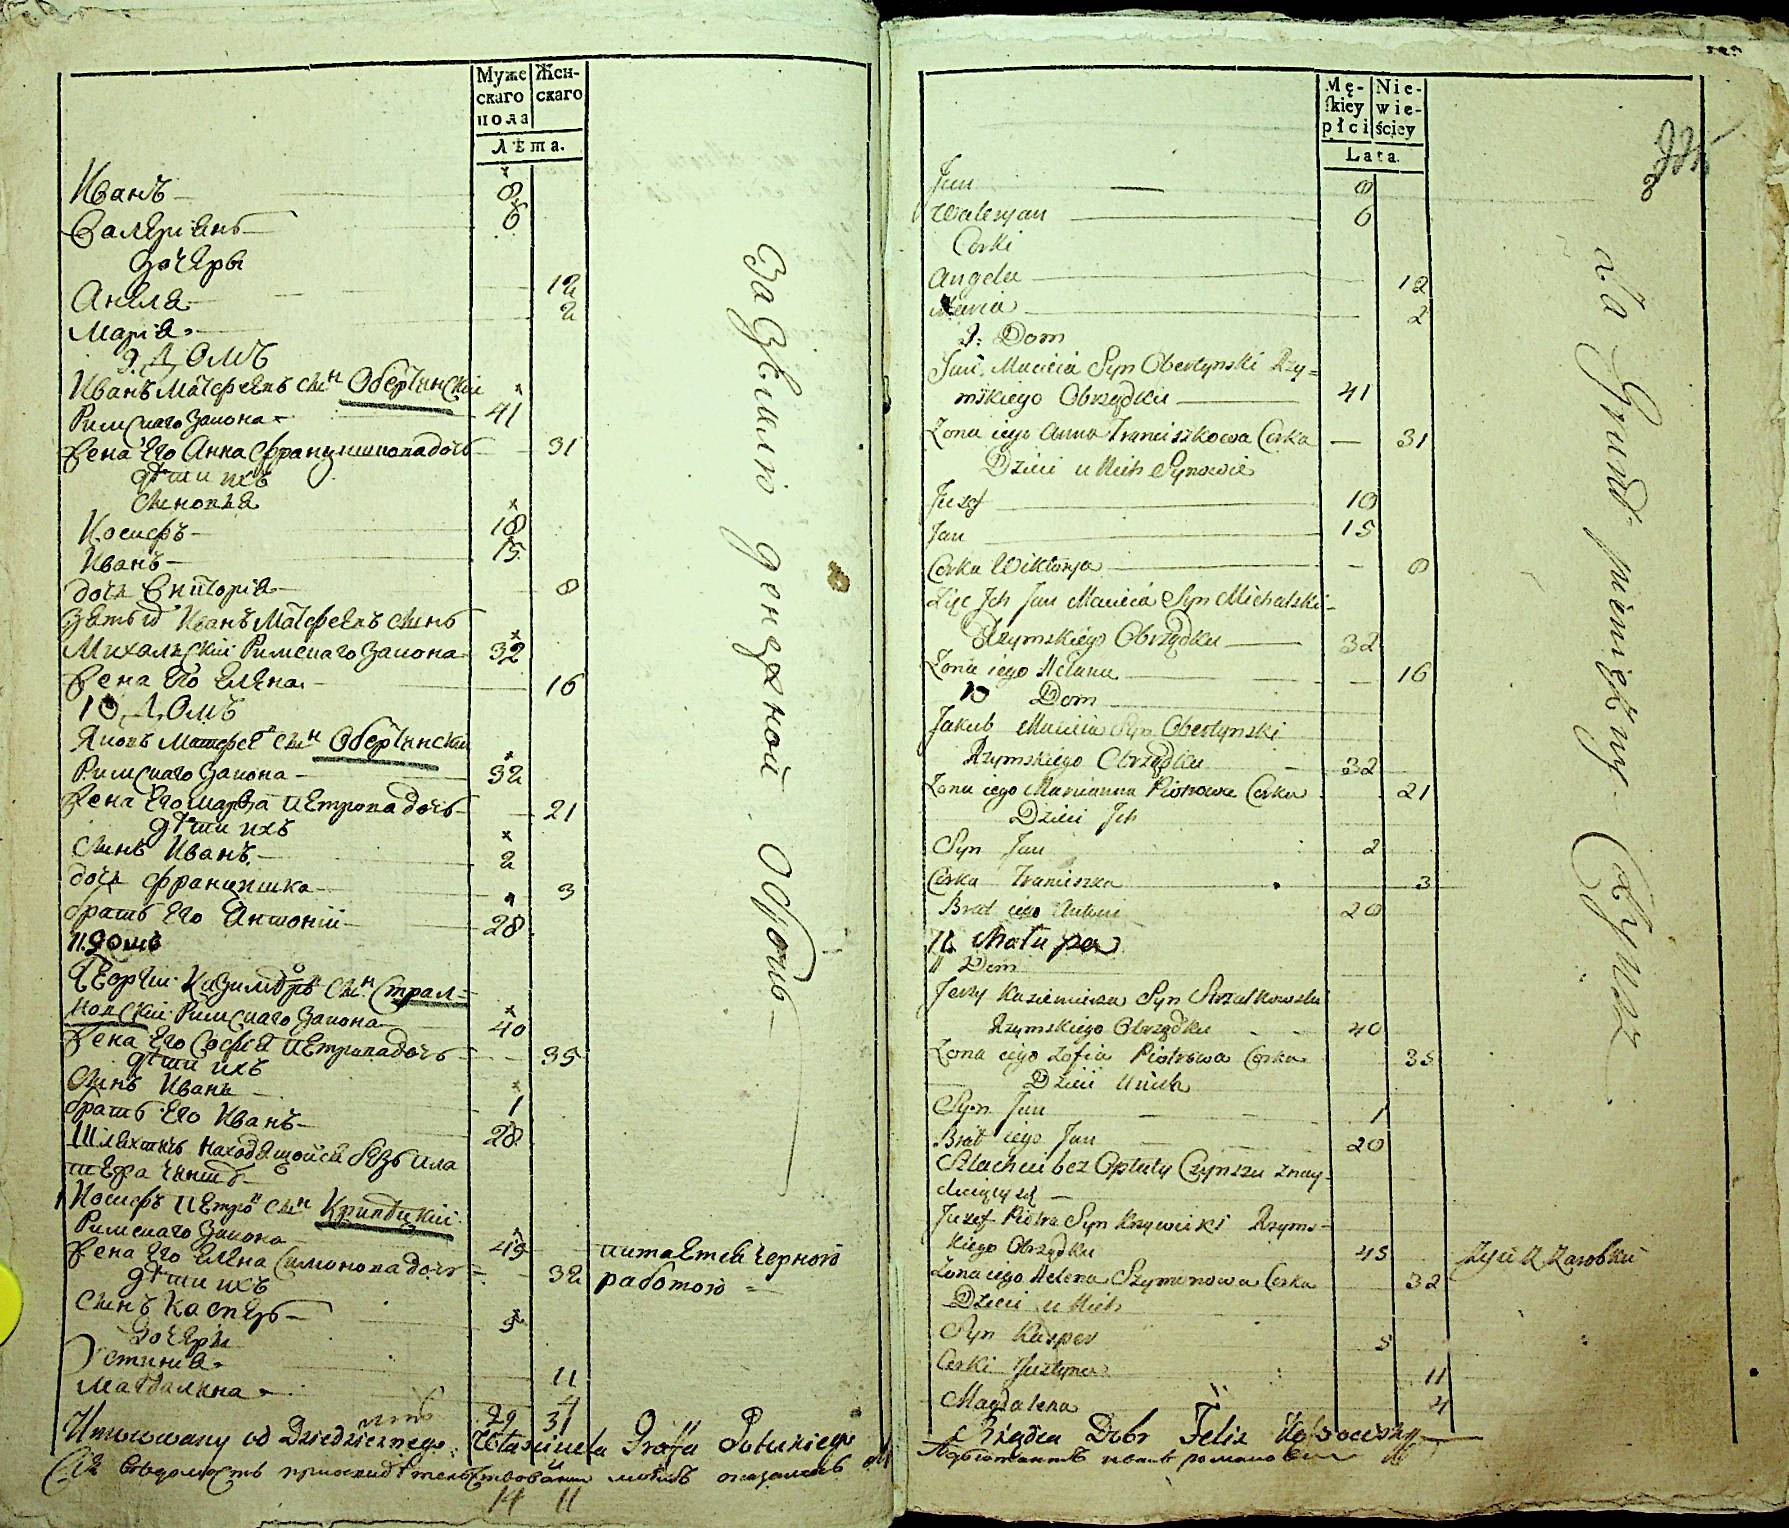 Муже
скаго
пола
Жен-
скаго
Лѣта.
Иванъ 8
Валеріанъ 6
Дочери
Анеля 12
Марія 2
9. Домъ
Иванъ Матфеевъ сынъ Обертинскій
Римскаго Закона 41
Жена Его Анна Францишкова дочь 31
Дѣти ихъ
Сыновья
Иосифъ 18
Иванъ 15
дочь Викторія 8
Зять ихъ Иванъ Матфеевъ сынъ
Михальскій Римскаго Закона 32
Жена Его Елена 16
10 Домъ
Яковъ Матфеевъ сынъ Обертинскій
Римскаго Закона 32
Жена Его Марья Петрова дочь 21
Дѣти ихъ
Сынъ Иванъ 2
дочь Францишка 3
братъ Его Антоній 28
11. домъ
Георгій Казиміровъ сынъ Страл=
ковскій Римскаго Закона 40
Жена Его Софія Петрова дочь 35
Дѣти ихъ
Сынъ Иванъ 1
братъ Его Иванъ 28
Шляхтичъ находящойся безъ пла
тежа чинша
Иосифъ Петровъ сынъ Кривицкій
Римскаго Закона 45
Жена Его Елена Симонова дочь 32
Дѣти ихъ
Сынъ Касперъ 5
Дочери
Устинія 11
Магдалена 4
29 31
За Землю денежной Оброкъ
питается черною
работою
od Dziedzicznego Własciciela Graffa Potockiego
14 11
Mę-
skiey
płci
Nie-
wie-
ściey
Lata.
Jan 8
Waleryan 6
Corki
Angela 12
Maria 2
9: Dom
Jan Macieia Syn Obertynski Rzy=
mskiego Obrządku 41
Zona iego Anna Franciszkowa Corka 31
Dzieci u Nich Synowie
Juzef 18
Jan 15
Corka Wiktorja 8
Zięc Ich Jan Macieia Syn Michalski
Rzymskiego Obrządku 32
Zona iego Helena 16
10 Dom
Jakub Macieia Syn Obertynski
Rzymskiego Obrządku 32
Zona iego Marianna Piotrowa Corka 21
Dzieci Ich
Syn Jan 2
Corka Franciszka 3
Brat iego Antoni 28
11. Chałupa
11 Dom
Jerzy Kazimierza Syn Strzałkowski
Rzymskiego Obrządku 40
Zona iego Zofia Piotrowa Corka 35
Dzieci u Nich
Syn Jan 1
Brat iego Jan 28
Szlachci bez Opłaty Czynszu znay-
duiący się
Juzef Piotra Syn Krzywicki Rzyms-
kiego Obrządku 45
Zona iego Helena Szymonowa Corka 32
Dzieci u Nich
Syn Kasper 5
Corki Justyna 11
Magdalena 4
Za Grunt pienięzny Czynsz
Żyie z Zarobku
Rządca Dobr Felix